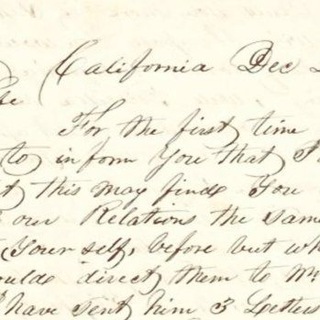 California Dec
For the first time
to inform You that I
this may finde You
our Relations the same
Your self, before but wh
oulds direct them to Mr
have sent him 3 Letters